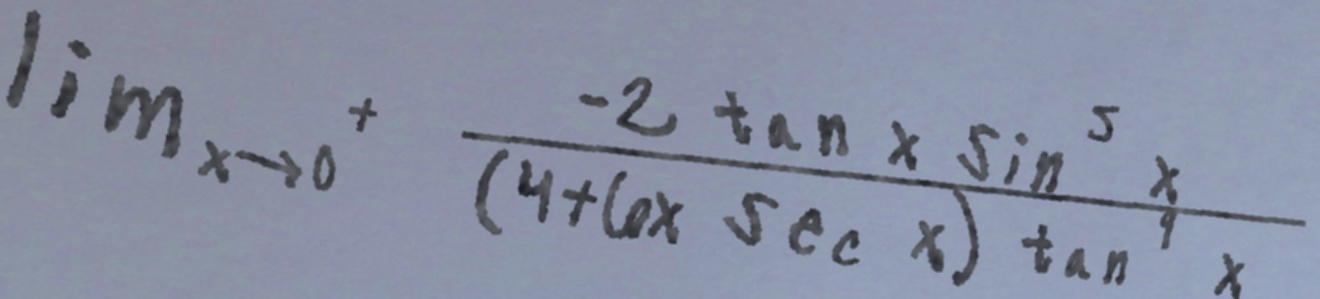 \lim_{x \to 0^+} \frac{-2 \tan x \sin^5 x}{(4+6x \sec x) \tan^9 x}